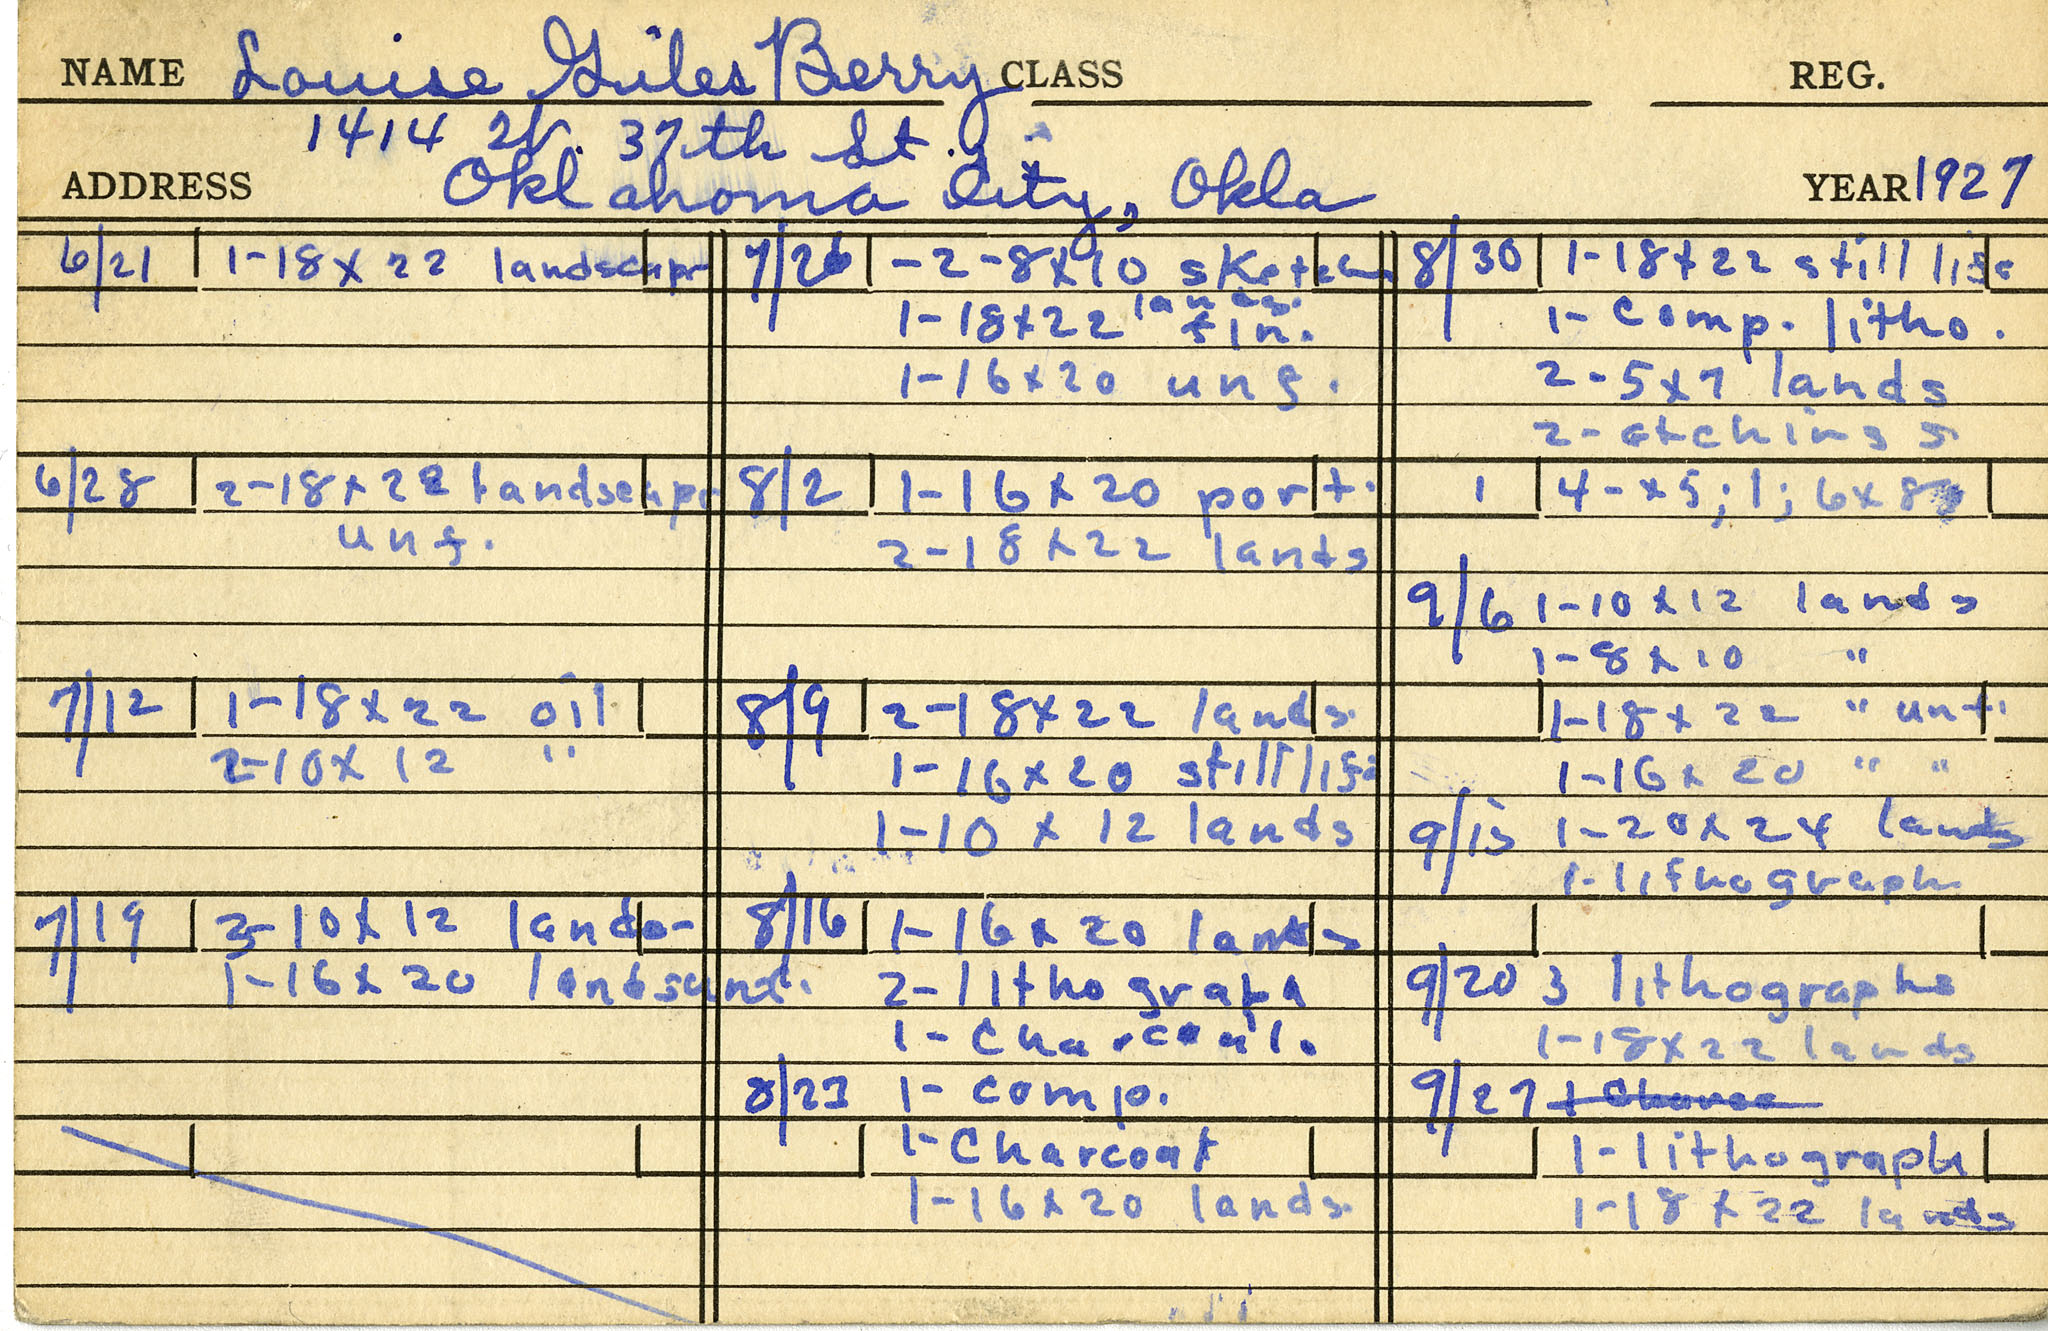 NAME Louise Giles Berry CLASS REG.
1414 W. 37th St.
ADDRESS Oklahoma City, Okla YEAR 1927
6/21 1-18x22 landscape
6/28 2-18x22 landscape
unf.
7/12 1-18x22 oil
2-10x12 "
7/19 3-10x12 lands-
1-16x20 land unf.
7/26 -2-8x10 sketch
lands.
1-18x22 fin.
1-16x20 unf.
8/2 1-16x20 port.
2-18x22 lands
8/9 2-18x22 lands.
1-16x20 still life
1-10x12 lands
8/16 1-16x20 lands
2-lithograph
1-Charcoal.
8/23 1-comp.
1-Charcoal
1-16x20 lands.
8/30 1-18x22 still life
1-Comp. litho.
2-5x7 lands
2-etchings
1 4-x5; 1; 6x8
9/6 1-10x12 lands
1-8x10 "
1-18x22 " unf.
1-16x20 " "
9/15 1-20x24 lands
1-lithograph
9/20 3 lithographs
1-18x22 lands
9/27
1-lithograph
1-18x22 lands